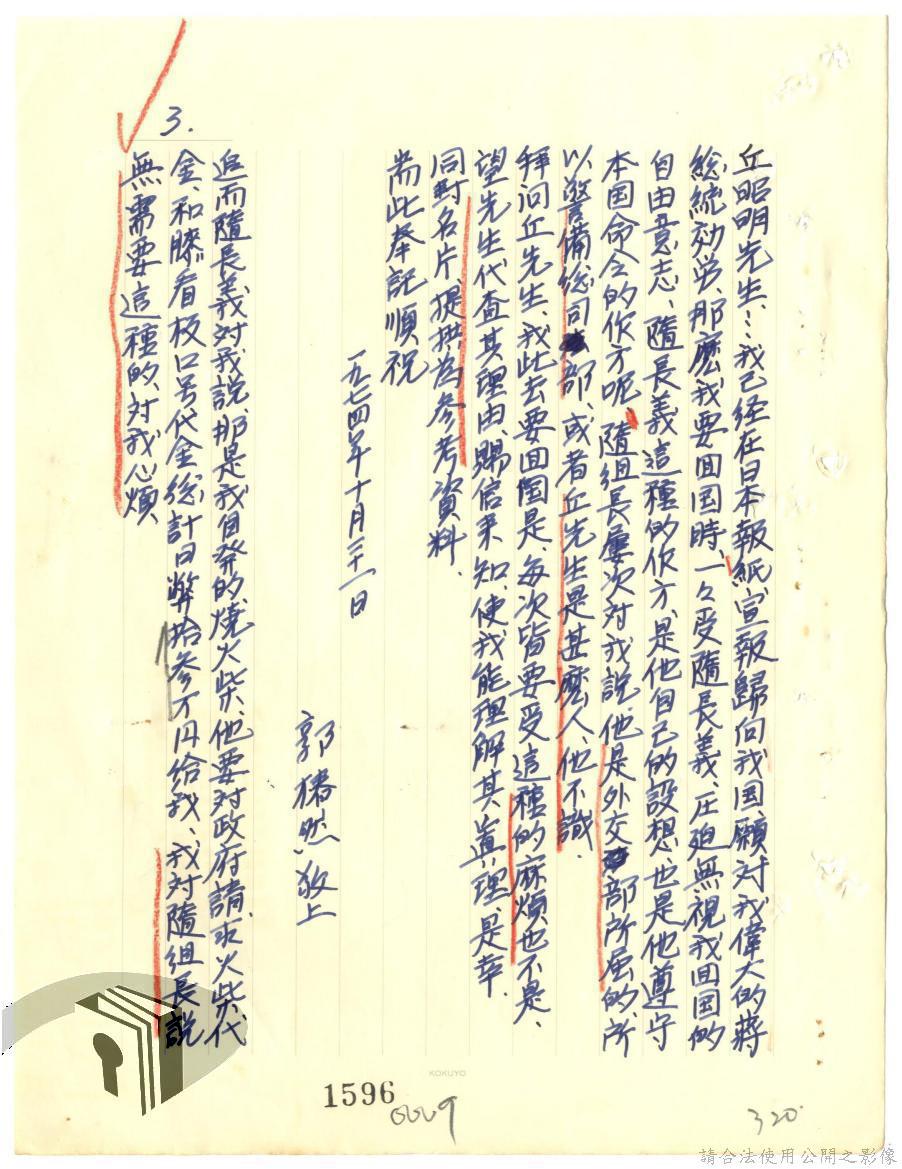 丘昭明先生、…我已经在日本報紙宣報歸向我国願対我偉大的蔣
総統効労、那麼我要回国時、一々受隨長義、圧迫無視我回国的
自由意志、隨長義這種的作方、是他自己的設想、也是他遵守
本国命令的作方呢、隨組長屢次対我説、他是外交部所屈的、所
以警備総司部、或者丘先生是甚麼人、他不識．
拜问丘先生、我此去要回国是、每次皆要受這種的麻煩也不是、
望先生代查其理由、賜信来知、使我能理解其道理、是幸．
同封名片、提拱為参考資料．
耑此奉記順祝
一九七四年十月二十一日
郭猪然、敬上
追而隨長義対我説、那是我自発的、燒火柴、他要対政府請求火柴代
金、和膝看板口号代金総計日弊拾参万円給我、我対隨組長説
無需要這種的、対我心煩
3.
KOKUYO
1596
0009
320
請合法使用公開之影像